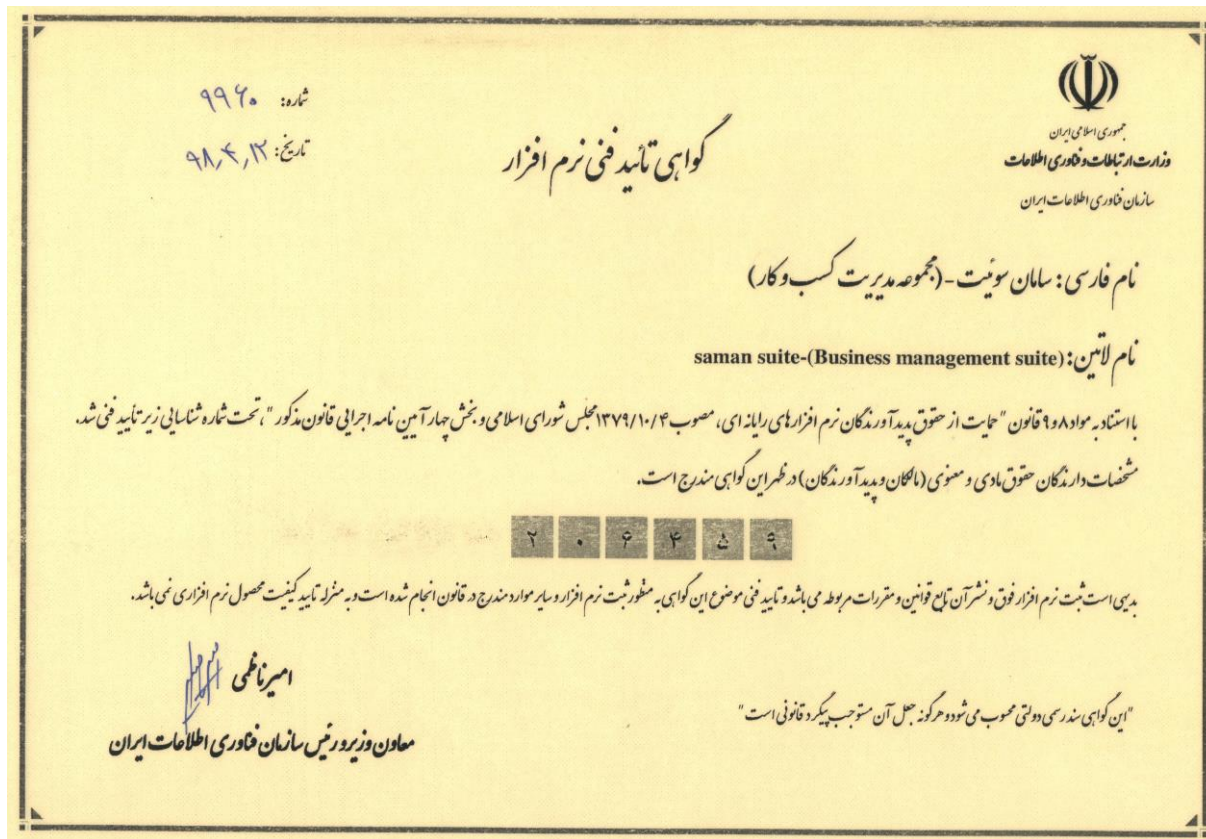 جمهوری اسلامی ایران
وزارت ارتباطات و فناوری اطلاعات
سازمان فناوری اطلاعات ایران
شماره: ۹۹۶۰
تاریخ: ۹۸٫۴٫۱۲
گواهی تائید فنی نرم افزار
نام فارسی: سامان سوئیت-(مجموعه مدیریت کسب و کار)
نام لاتین: saman suite-(Business management suite)
با استناد به مواد ۸ و ۹ قانون "حمایت از حقوق پدیدآورندگان نرم افزارهای رایانه ای، مصوب ۱۳۷۹/۱۰/۴ مجلس شورای اسلامی و بخش چهار آیین نامه اجرایی قانون مذکور"، تحت شماره شناسایی زیر تأیید فنی شد.
مشخصات دارندگان حقوق مادی و معنوی (مالکان و پدیدآورندگان) در ظهر این گواهی مندرج است.
۲۰۶۴۵۹
بدیهی است ثبت نرم افزار فوق و نشر آن تابع قوانین و مقررات مربوطه می باشد و تایید فنی موضوع این گواهی به منظور ثبت نرم افزار و سایر موارد مندرج در قانون انجام شده است و به منزله تایید کیفیت محصول نرم افزاری نمی باشد.
امیر ناظمی
معاون وزیر و رئیس سازمان فناوری اطلاعات ایران
"این گواهی سند رسمی دولتی محسوب می شود و هرگونه جعل آن مستوجب پیگرد قانونی است"